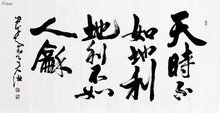 天時不
如地利
地利不如
人龢